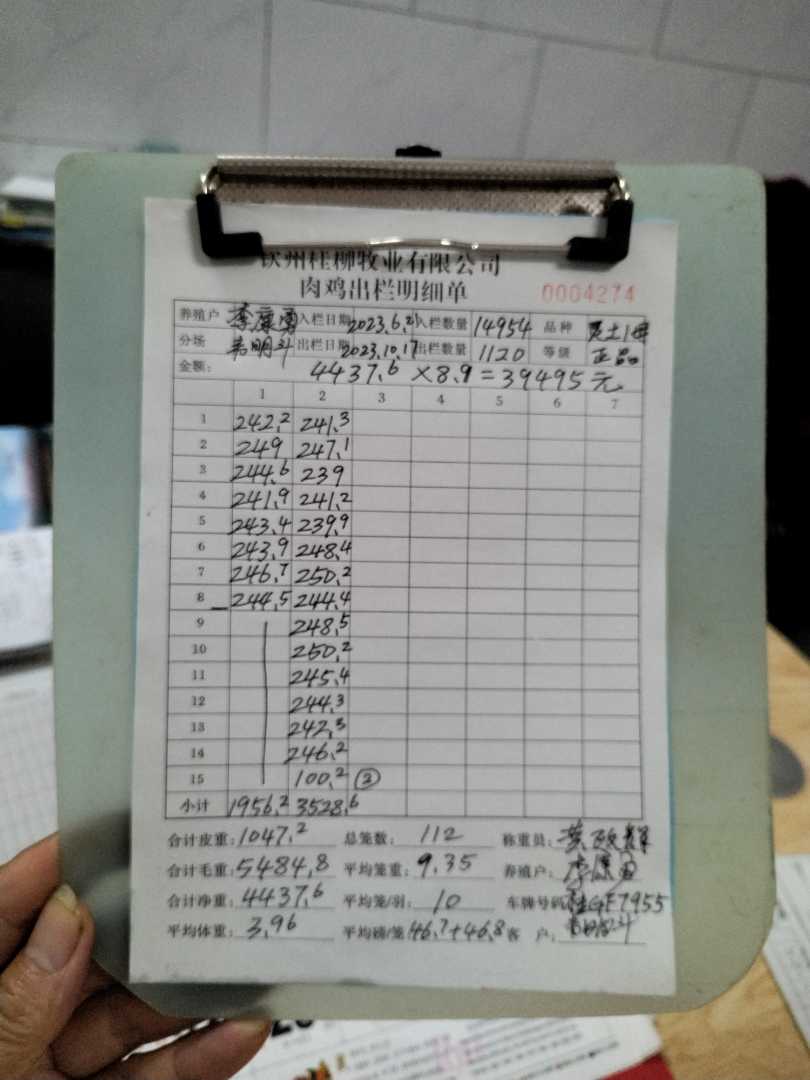 钦州桂柳牧业有限公司
肉鸡出栏明细单 0004274
养殖户 李康勇 入栏日期 2023.6.21 入栏数量 14954 品种 土1母
分场 韦明斗 出栏日期 2023.10.17 出栏数量 1120 等级 正品
金额: 4437.6 ×8.9=39495元
1 2 3 4 5 6 7
1 242.2 241.3
2 249 247.1
3 244.6 239
4 241.9 241.2
5 243.4 239.9
6 243.9 248.4
7 246.7 250.2
8 244.5 244.4
9 248.5
10 250.2
11 245.4
12 244.3
13 242.3
14 246.2
15 100.2 ②
小计 1956.2 3528.6
合计皮重: 1047.2 总笼数: 112 称重员:
合计毛重: 5484.8 平均笼重: 9.35 养殖户: 李康勇
合计净重: 4437.6 平均笼/羽: 10 车牌号码 桂GF7955
平均体重: 3.96 平均磅/笼 46.7+46.8 客 户: 韦明斗